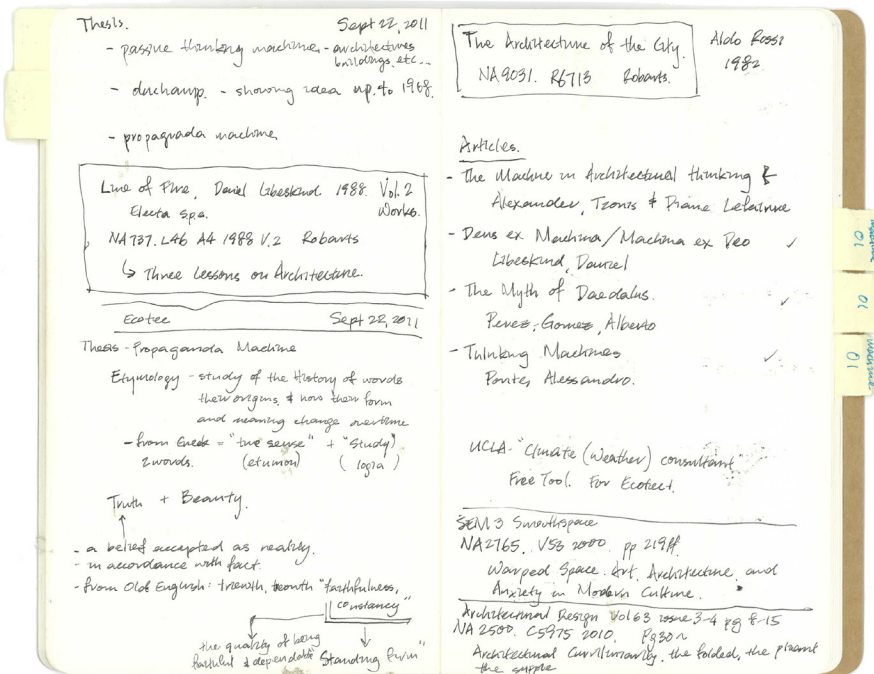 Thesis. Sept 22, 2011
- passive thinking machine - architectures
buildings, etc...
- duchamp. - showing idea up to 1968.
- propaganda machine
Line of Fire, Daniel Libeskind 1988. Vol. 2
Electa S.p.a. Works.
NA737. L46 A4 1988 V.2 Robarts
↳ Three Lessons on Architecture.
Ecotec Sept 22, 2011
Thesis - Propaganda Machine
Etymology - study of the History of words
their origins, & how their form
and meaning change overtime
- from Greek = "true sense" + "study"
2 words. (etumon) (logia)
Truth + Beauty.
- a belief accepted as reality.
- in accordance with fact.
- from Old English: triewth, treowth "faithfulness,
constancy"
the quality of being
faithful & dependable "Standing firm"
The Architecture of the City. Aldo Rossi
NA9031. R6713 Robarts. 1982
Articles.
- The Machine in Architectural thinking
Alexander, Tzonis & Diane Lefaivre
- Deus ex Machina/Machina ex Deo ✓
Libeskind, Daniel
- The Myth of Daedalus. ✓
Perez-Gomez, Alberto
- Thinking Machines ✓
Ponte, Alessandro.
UCLA - "Climate (Weather) consultant"
Free Tool. For Ecotect.
SEM 3 Smoothspace
NA2765. V53 2000. pp 219ff.
Warped Space. Art, Architecture, and
Anxiety in Modern Culture.
Architectural Design Vol 63 issue 3-4 pg 8-15
NA 2500. C5975 2010. Pg30~
Architectural Curvilinearity, the folded, the pliant
the supple
01
01
machine
01